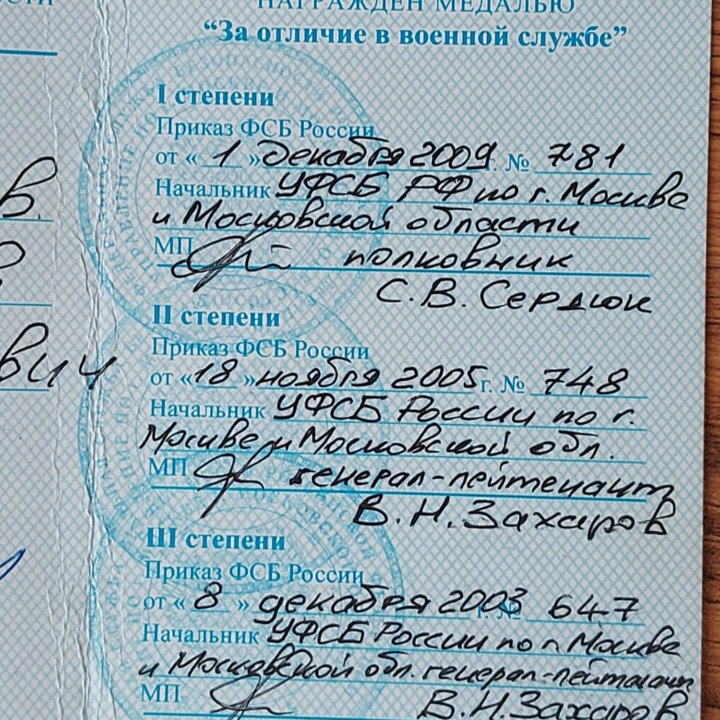 НАГРАЖДЕН МЕДАЛЬЮ
“За отличие в военной службе”
I степени
Приказ ФСБ России
от « 1 » декабря 2009г. № 781
Начальник УФСБ РФ по г. Москве
и Московской области
МП полковник
С. В. Сердюк
II степени
Приказ ФСБ России
от « 18 » ноября 2005 г. № 748
Начальник УФСБ России по г.
Москве и Московской обл.
МП генерал-лейтенант
В. Н. Захаров
III степени
Приказ ФСБ России
от « 8 » декабря 2003 г. № 647
Начальник УФСБ России по г. Москве
и Московской обл. генерал-лейтенант
МП В. Н. Захаров